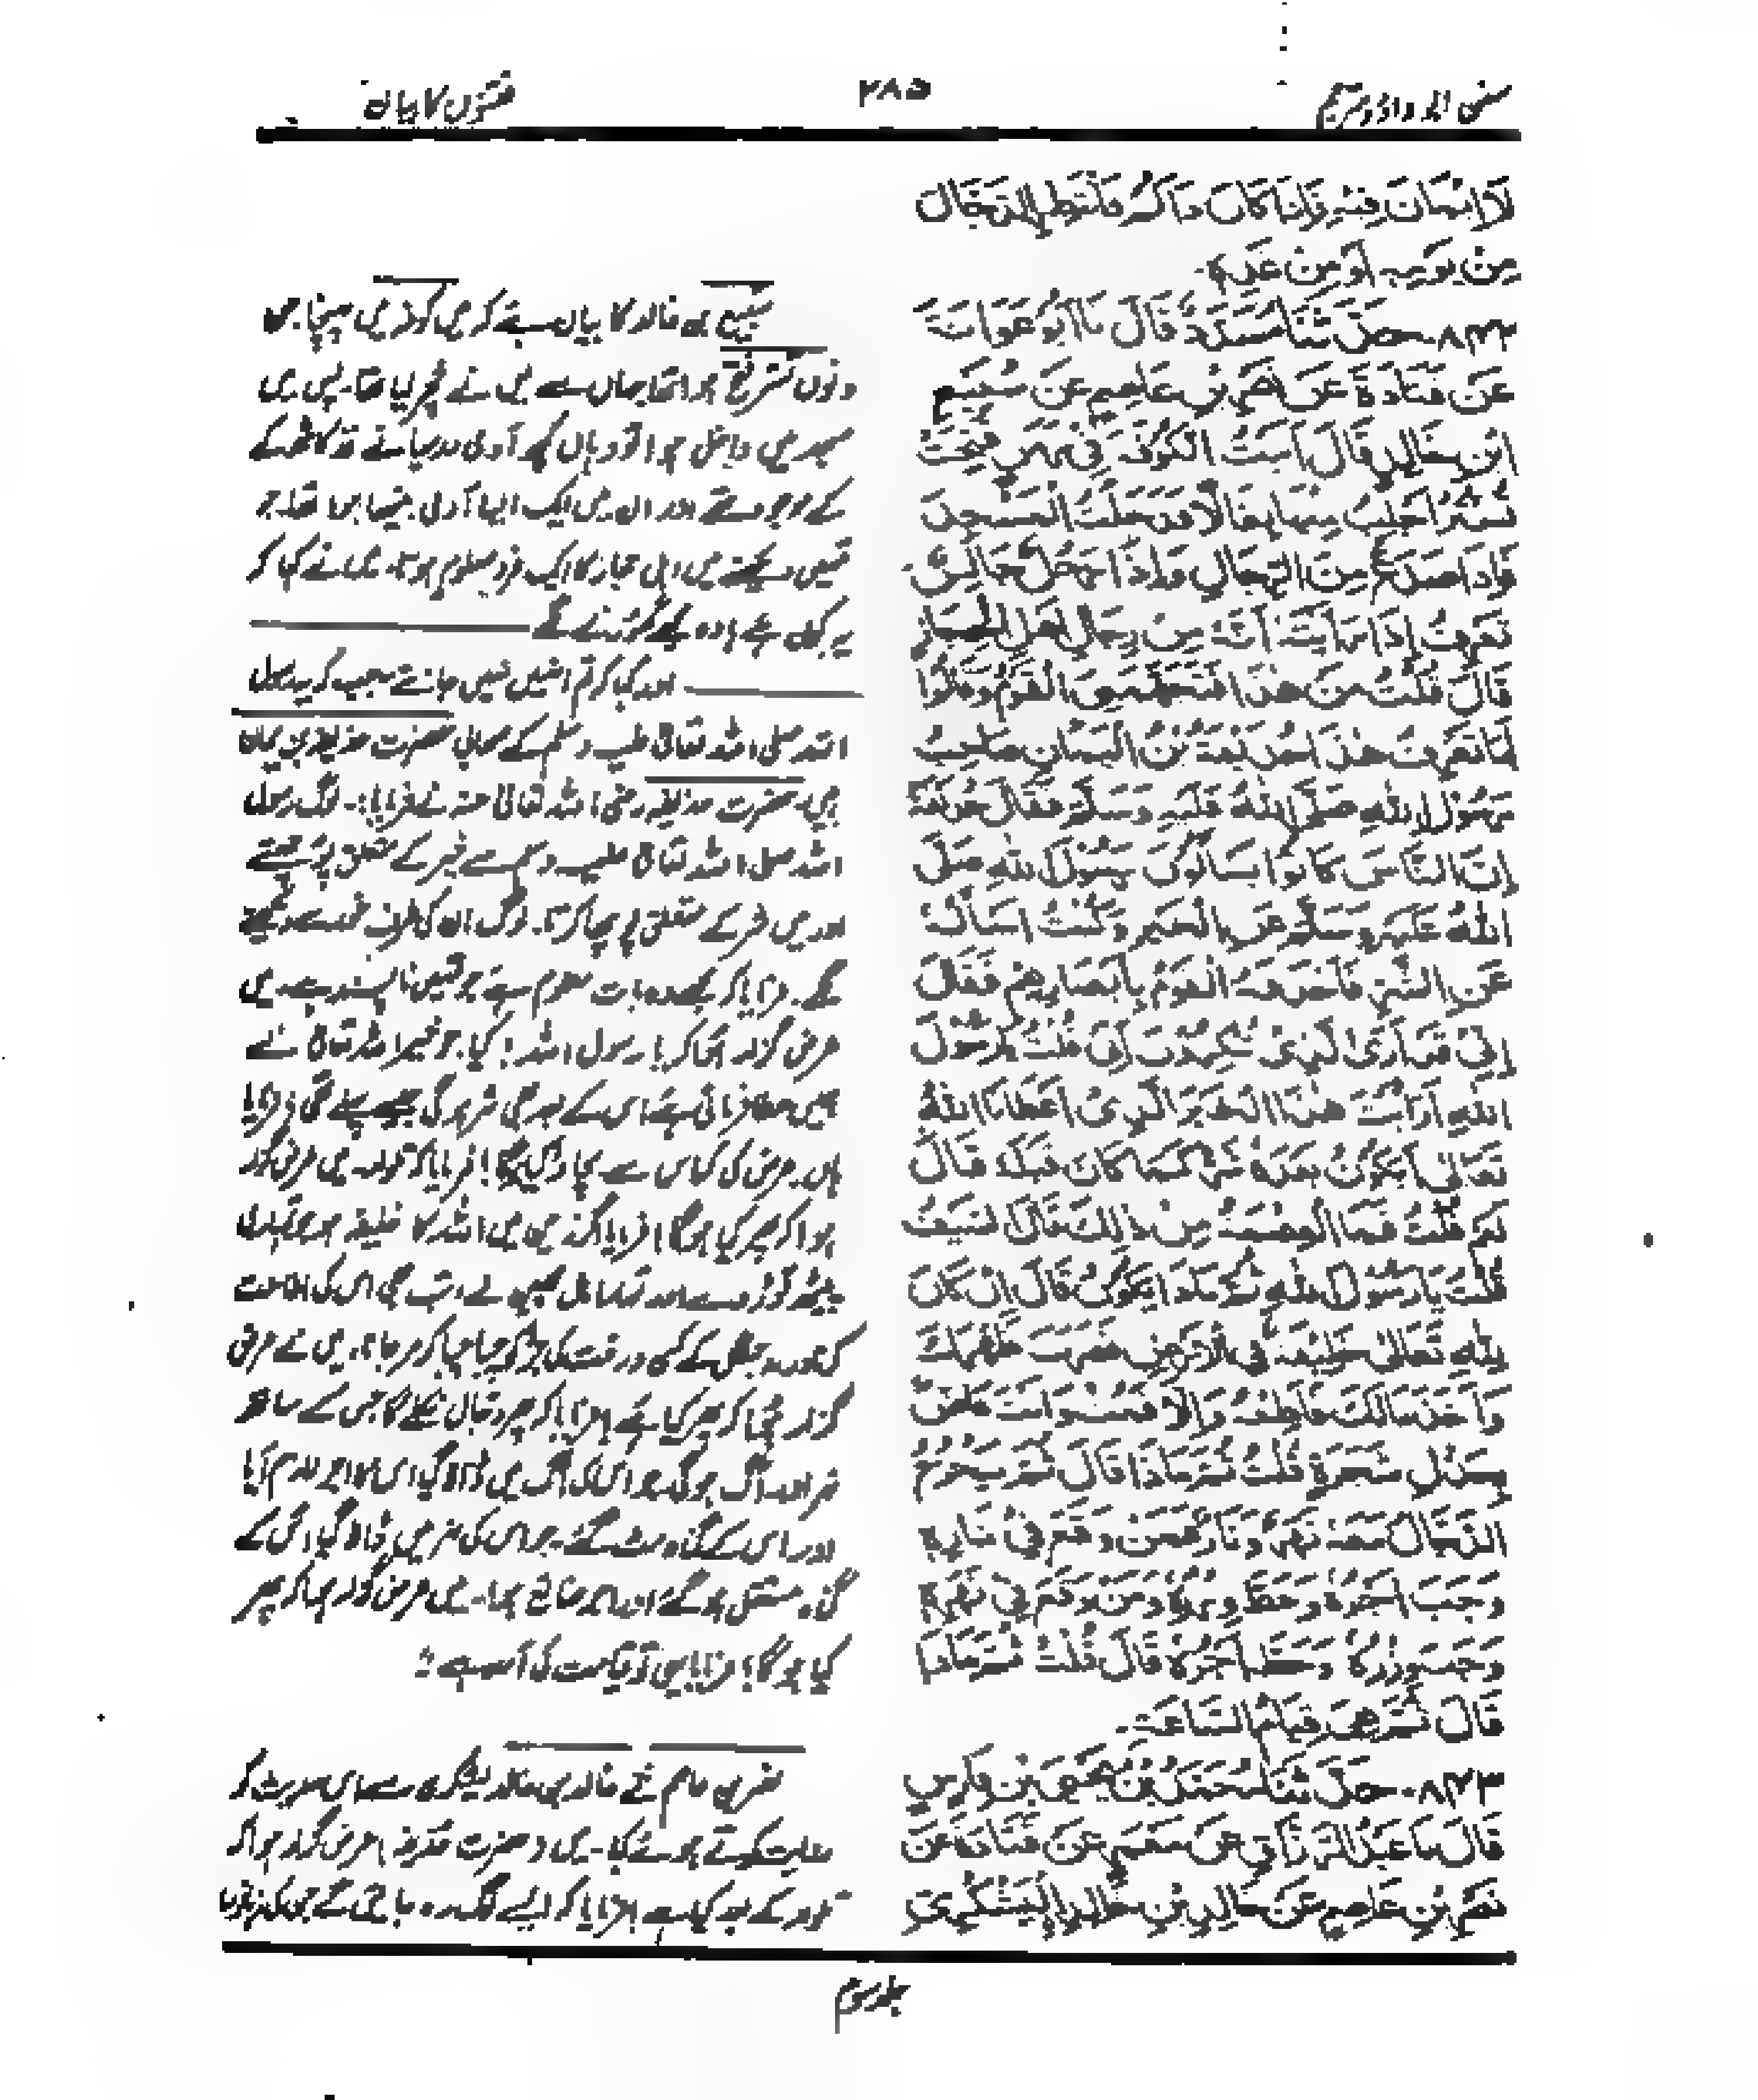 سنن ابوداؤد مترجم
۲۸۵
فتنوں کا بیان
لَا إِيْمَانَ فِيْهِ فَإِذَا كَانَ ذَاكُمْ فَانْتَظِرُوا الدَّجَّالَ
مِنْ يَوْمِهِ أَوْ مِنْ غَدِهِ.
۸۴۲- حَدَّثَنَا مُسَدَّدٌ قَالَ نَا أَبُو عَوَانَةَ
عَنْ قَتَادَةَ عَنْ نَصْرِ بْنِ عَاصِمٍ عَنْ سُبَيْعِ
ابْنِ خَالِدٍ قَالَ أَتَيْتُ الْكُوفَةَ فِي زَمَنِ فُتِحَتْ
تُسْتَرُ أَجْلِبُ مِنْهَا بِغَالًا فَدَخَلْتُ الْمَسْجِدَ
فَإِذَا صَدْعٌ مِنَ الرِّجَالِ وَإِذَا رَجُلٌ جَالِسٌ
تَعْرِفُ إِذَا رَأَيْتَهُ أَنَّهُ مِنْ رِجَالِ أَهْلِ الْحِجَازِ
قَالَ قُلْتُ مَنْ هٰذَا فَتَجَهَّمَنِي الْقَوْمُ وَقَالُوا
أَمَا تَعْرِفُ هٰذَا حُذَيْفَةُ بْنُ الْيَمَانِ صَاحِبُ
رَسُولِ اللهِ صَلَّى اللهُ عَلَيْهِ وَسَلَّمَ فَقَالَ حُذَيْفَةُ
إِنَّ النَّاسَ كَانُوا يَسْأَلُونَ رَسُولَ اللهِ صَلَّى
اللهُ عَلَيْهِ وَسَلَّمَ عَنِ الْخَيْرِ وَكُنْتُ أَسْأَلُهُ
عَنِ الشَّرِّ فَأَحْدَقَهُ الْقَوْمُ بِأَبْصَارِهِمْ فَقَالَ
إِنِّي قَدْ أَرَى الَّذِي تُنْكِرُونَ إِنِّي قُلْتُ يَا رَسُولَ
اللهِ أَرَأَيْتَ هٰذَا الْخَيْرَ الَّذِي أَعْطَانَا اللهُ
تَعَالٰى أَيَكُونُ بَعْدَهُ شَرٌّ كَمَا كَانَ قَبْلَهُ قَالَ
نَعَمْ قُلْتُ فَمَا الْعِصْمَةُ مِنْ ذٰلِكَ قَالَ السَّيْفُ
قُلْتُ يَا رَسُولَ اللهِ ثُمَّ مَاذَا يَكُونُ قَالَ إِنْ كَانَ
لِلّٰهِ تَعَالٰى خَلِيفَةٌ فِي الْأَرْضِ فَضَرَبَ ظَهْرَكَ
وَأَخَذَ مَالَكَ فَأَطِعْهُ وَإِلَّا فَمُتْ وَأَنْتَ عَاضٌّ
بِجِذْلِ شَجَرَةٍ قُلْتُ ثُمَّ مَاذَا قَالَ ثُمَّ يَخْرُجُ
الدَّجَّالُ مَعَهُ نَهْرٌ وَنَارٌ فَمَنْ وَقَعَ فِي نَارِهِ
وَجَبَ أَجْرُهُ وَحُطَّ وِزْرُهُ وَمَنْ وَقَعَ فِي نَهْرِهِ
وَجَبَ وِزْرُهُ وَحُطَّ أَجْرُهُ قَالَ قُلْتُ ثُمَّ مَاذَا
قَالَ ثُمَّ هِيَ قِيَامُ السَّاعَةِ.
۸۴۳- حَدَّثَنَا مُحَمَّدُ بْنُ يَحْيَى بْنِ فَارِسٍ
قَالَ نَا عَبْدُ الرَّزَّاقِ عَنْ مَعْمَرٍ عَنْ قَتَادَةَ عَنْ
نَصْرِ بْنِ عَاصِمٍ عَنْ خَالِدِ بْنِ خَالِدٍ الْيَشْكُرِيِّ
سبیع بن خالد کا بیان ہے کہ میں کوفہ میں پہنچا جن
دنوں تستر فتح ہوا تھا جہاں سے میں نے خچر لیا تھا۔ پس میں
مسجد میں داخل ہوا تو وہاں کچھ آدمی درمیانے قد کاٹھ کے
کے موجود تھے اور ان میں ایک ایسا آدمی بیٹھا ہوا تھا۔ جو
تمہیں دیکھنے میں اہل حجاز کا ایک فرد معلوم ہوتا۔ میں نے کہا کہ
یہ کون ہے؟ وہ مجھے گھورنے لگے
اور کہا کہ تم انہیں نہیں جانتے جب کہ یہ رسول
اللہ صلی اللہ تعالیٰ علیہ وسلم کے صحابی حضرت حذیفہ بن یمان
ہیں۔ حضرت حذیفہ رضی اللہ تعالیٰ عنہ نے فرمایا:۔ لوگ رسول
اللہ صلی اللہ تعالیٰ علیہ وسلم سے خیر کے متعلق پوچھتے
اور میں شر کے متعلق پوچھا کرتا۔ لوگ ان کی طرف غور سے دیکھنے
لگے۔ فرمایا کہ مجھے وہ بات معلوم ہے جو تمہیں ناپسند ہے۔ میں
عرض گزار ہوا کہ یا رسول اللہ! کیا جو خیر اللہ تعالیٰ نے
ہمیں عطا فرمائی ہے اس کے بعد بھی شر ہوگی جیسے پہلے تھی؟ فرمایا
ہاں۔ عرض کی کہ اس سے بچاؤ کیا ہوگا؟ فرمایا کہ تلوار۔ میں عرض گزار
ہوا کہ پھر کیا ہوگا؟ فرمایا اگر زمین میں اللہ کا خلیفہ ہو جو تمہاری
پیٹھ توڑ دے اور تمہارا مال چھین لے، تب بھی اس کی اطاعت
کرنا ورنہ جنگل کے کسی درخت کی جڑ کو چبا چبا کر مر جانا۔ میں نے عرض
گزار ہوا کہ پھر کیا ہے؟ فرمایا کہ پھر دجال نکلے گا جس کے ساتھ
نہر اور آگ ہوگی۔ جو اس کی آگ میں ڈالا گیا اس کا اجر لازم آیا
اور اس کے گناہ مٹ گئے۔ جو اس کی نہر میں ڈالا گیا اس کے
گناہ مستقل ہو گئے اور اجر ضائع ہوا۔ میں عرض گزار ہوا کہ پھر
کیا ہوگا؟ فرمایا پس تو قیامت کی آمد ہے:
نصر بن عاصم نے خالد بن خالد یشکری سے اس حدیث کو
روایت کرتے ہوئے کہا۔ میں (حضرت حذیفہ) عرض گزار ہوا کہ
تلوار کے بعد کیا ہے؟ فرمایا کہ ایسے لوگ رہ جائیں گے جن کی
جلد سوم